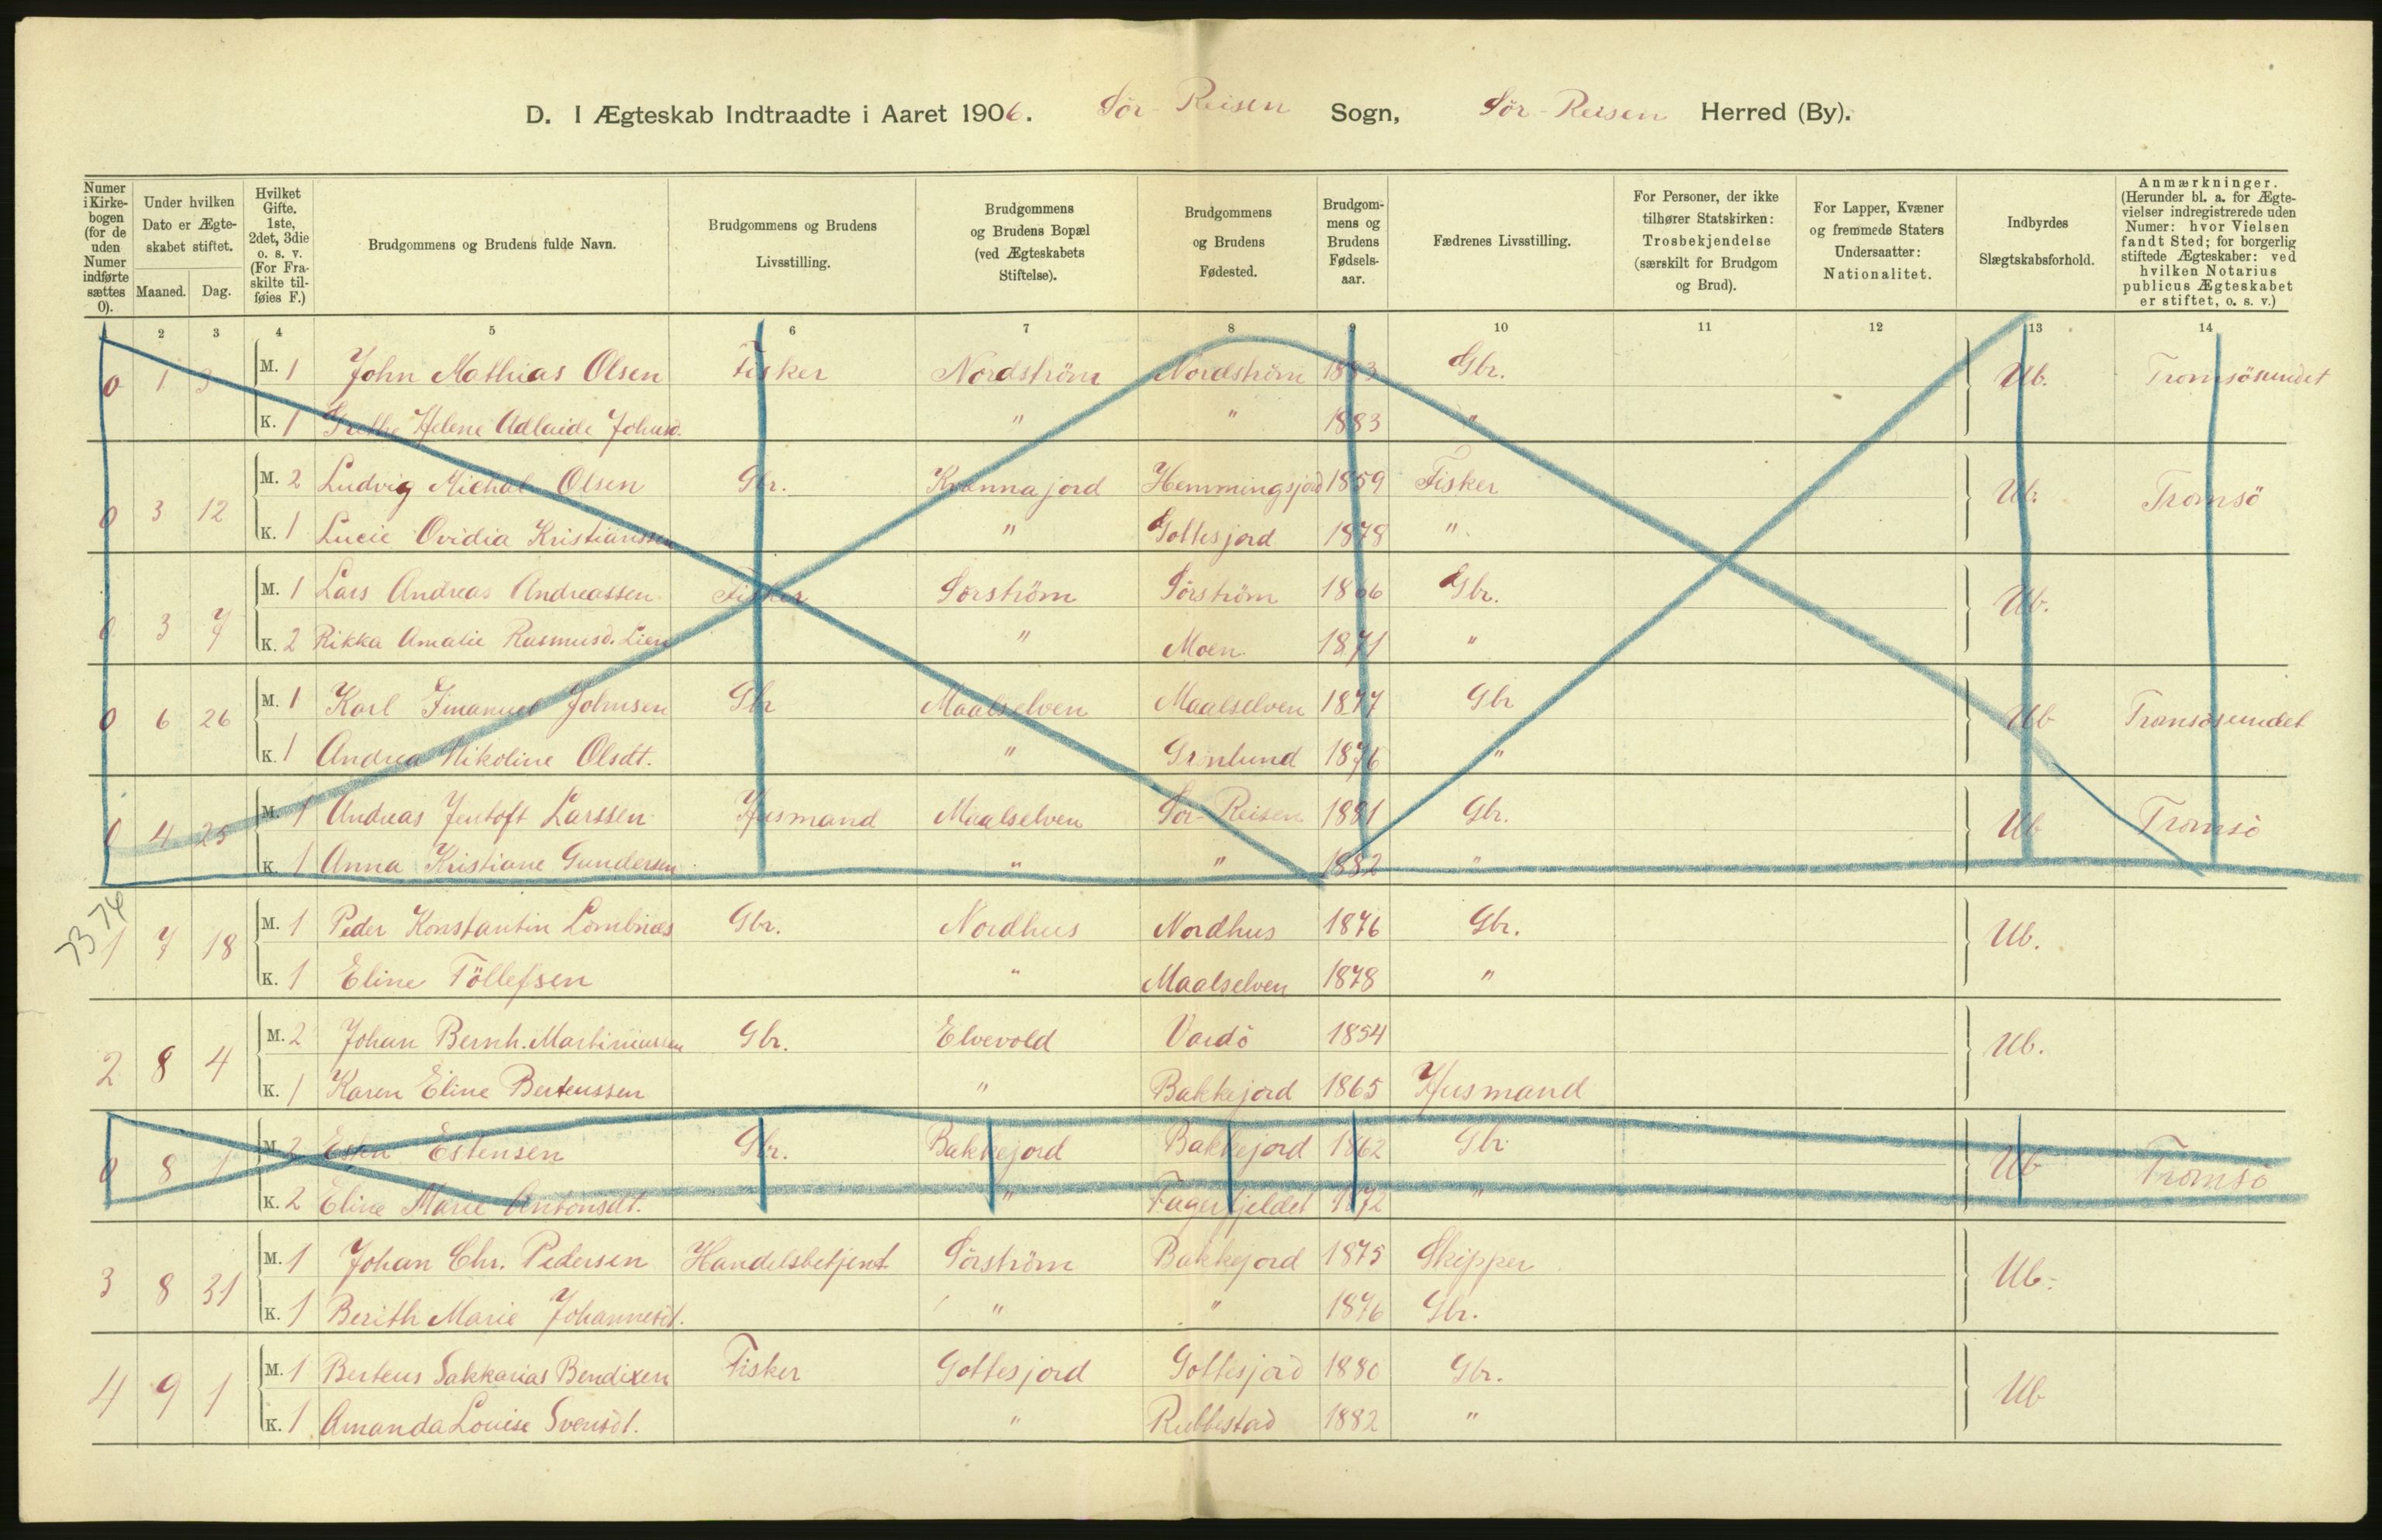 D. I Ægteskab Indtraadte i Aaret 1906. Sör-Reisen Sogn, Sör-Reisen Herred (By).
Numer i Kirkebogen (for de uden Numer indførte sættes 0).
Under hvilken Dato er Ægteskabet stiftet. Maaned. Dag.
Hvilket Gifte. 1ste, 2det, 3die o. s. v. (For Fraskilte tilføies F.)
Brudgommens og Brudens fulde Navn.
Brudgommens og Brudens Livsstilling.
Brudgommens og Brudens Bopæl (ved Ægteskabets Stiftelse).
Brudgommens og Brudens Fødested.
Brudgommens og Brudens Fødselsaar.
Fædrenes Livsstilling.
For Personer, der ikke tilhører Statskirken: Trosbekjendelse (særskilt for Brudgom og Brud).
For Lapper, Kvæner og fremmede Staters Undersaatter: Nationalitet.
Indbyrdes Slægtskabsforhold.
Anmærkninger. (Herunder bl. a. for Ægtevielser indregistrerede uden Numer: hvor Vielsen fandt Sted; for borgerlig stiftede Ægteskaber: ved hvilken Notarius publicus Ægteskabet er stiftet, o. s. v.)
2 3 4 5 6 7 8 9 10 11 12 13 14
0 1 3 M. 1 John Mathias Olsen Fisker Nordström Nordström 1883 Gbr. Ub. Tromsösundet
K. 1 Helene Adlaide Johnsd. " " 1883 "
0 3 12 M. 2 Ludvig Michal Olsen Gbr. Kvannajord Hemmingsjord 1859 Fisker Ub. Tromsö
K. 1 Lucie Ovidia Kristianssen " Gottesjord 1878 "
0 3 7 M. 1 Lars Andreas Andreassen Fisker Sörström Sörström 1866 Gbr. Ub.
K. 2 Rikka Amalie Rasmusd. Lien " Moen 1871 "
0 6 26 M. 1 Karl Imanuel Johnsen Gbr Maalselven Maalselven 1877 Gbr Ub Tromsösundet
K. 1 Andrea Nikoline Olsdt. " Grönlund 1876 "
0 4 25 M. 1 Andreas Jentoft Larssen Husmand Maalselven Sör-Reisen 1881 Gbr. Ub Tromsö
K. 1 Anna Kristiane Gundersen " " 1882 "
1 7 18 M. 1 Peder Konstantin Lombnæs Gbr. Nordhus Nordhus 1876 Gbr. Ub.
K. 1 Eline Töllefsen " Maalselven 1878 "
2 8 4 M. 2 Johan Bernh. Martiniussen Gbr. Elvevold Vardö 1854 Ub.
K. 1 Karen Eline Berteussen " Bakkejord 1865 Husmand
0 8 1 M. 2 Esten Estensen Gbr. Bakkejord Bakkejord 1862 Gbr Ub Tromsö
K. 2 Eline Marie Antonsdt. " Fagerfjeldet 1872 "
3 8 31 M. 1 Johan Chr. Pedersen Handelsbetjent Sörström Bakkejord 1875 Skipper Ub.
K. 1 Berith Marie Johannesdt. " " 1876 Gbr.
4 9 1 M. 1 Berteus Sakkarias Bendixen Fisker Gottesjord Gottesjord 1880 Gbr. Ub
K. 1 Amanda Louise Svensdt. " Rubbestad 1882 "